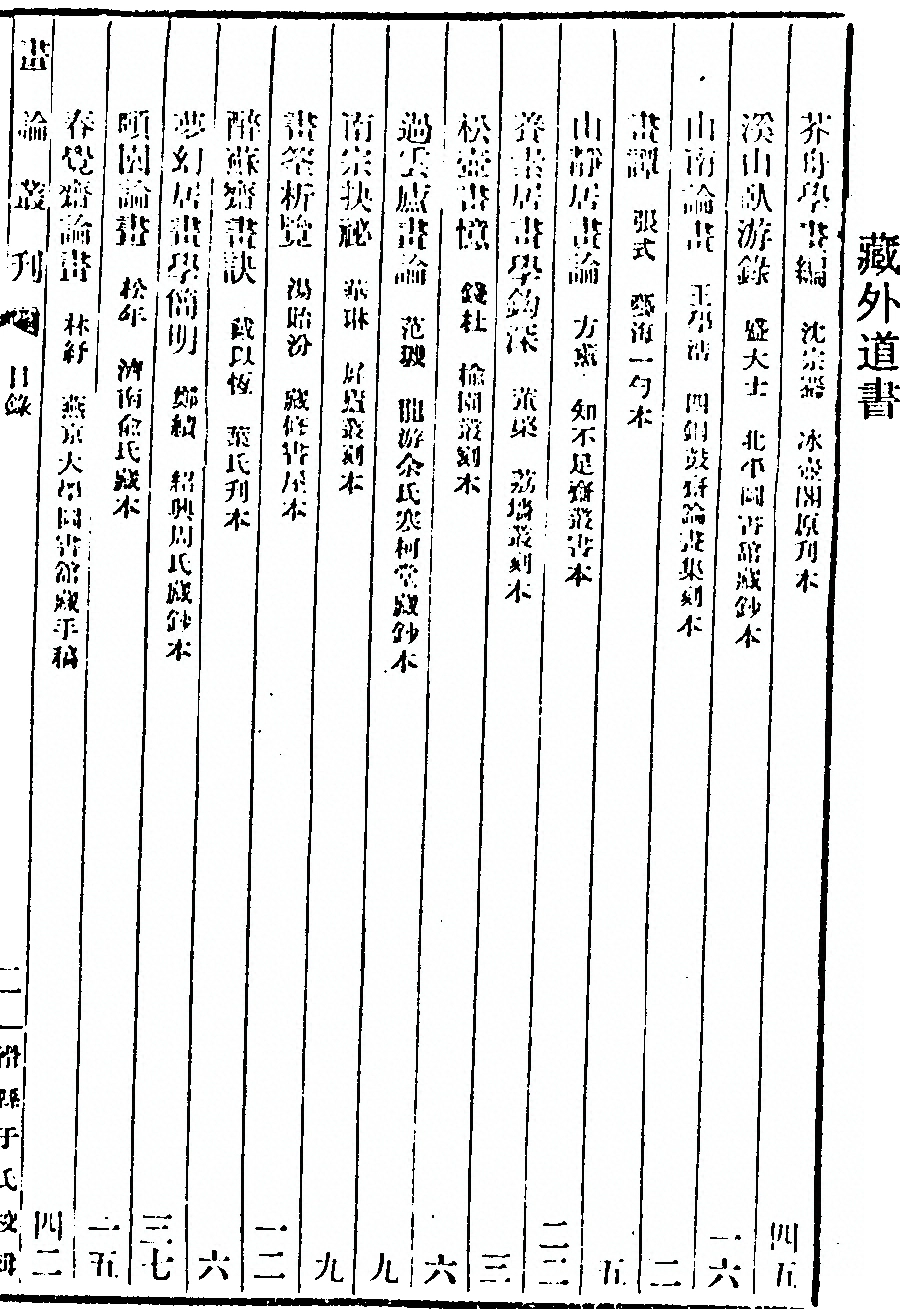 藏外道書
芥舟學畫編 沈宗騫 冰壺閣原刊本 四五
溪山臥游錄 盛大士 北平圖書館藏鈔本 一六
山南論畫 王學浩 四銅鼓齋論畫集刻本 二
畫譚 張式 藝海一勺本 五
山靜居畫論 方薰 知不足齋叢書本 二二
養素居畫學鈎深 董棨 荔牆叢刻本 三
松壺畫憶 錢杜 榆園叢刻本 六
過雲廬畫論 范璣 龍游余氏寒柯堂藏鈔本 九
南宗抉祕 華琳 叢刻本 九
畫筌析覽 湯貽汾 藏修書屋本 一二
醉蘇齋畫訣 戴以恆 葉氏刊本 六
夢幻居畫學簡明 鄭績 紹興周氏藏鈔本 三七
頤園論畫 松年 濟南俞氏藏本 一五
春覺齋論畫 林紓 燕京大學圖書館藏手稿 四二
畫論叢刊 目錄 二 縣于氏校輯